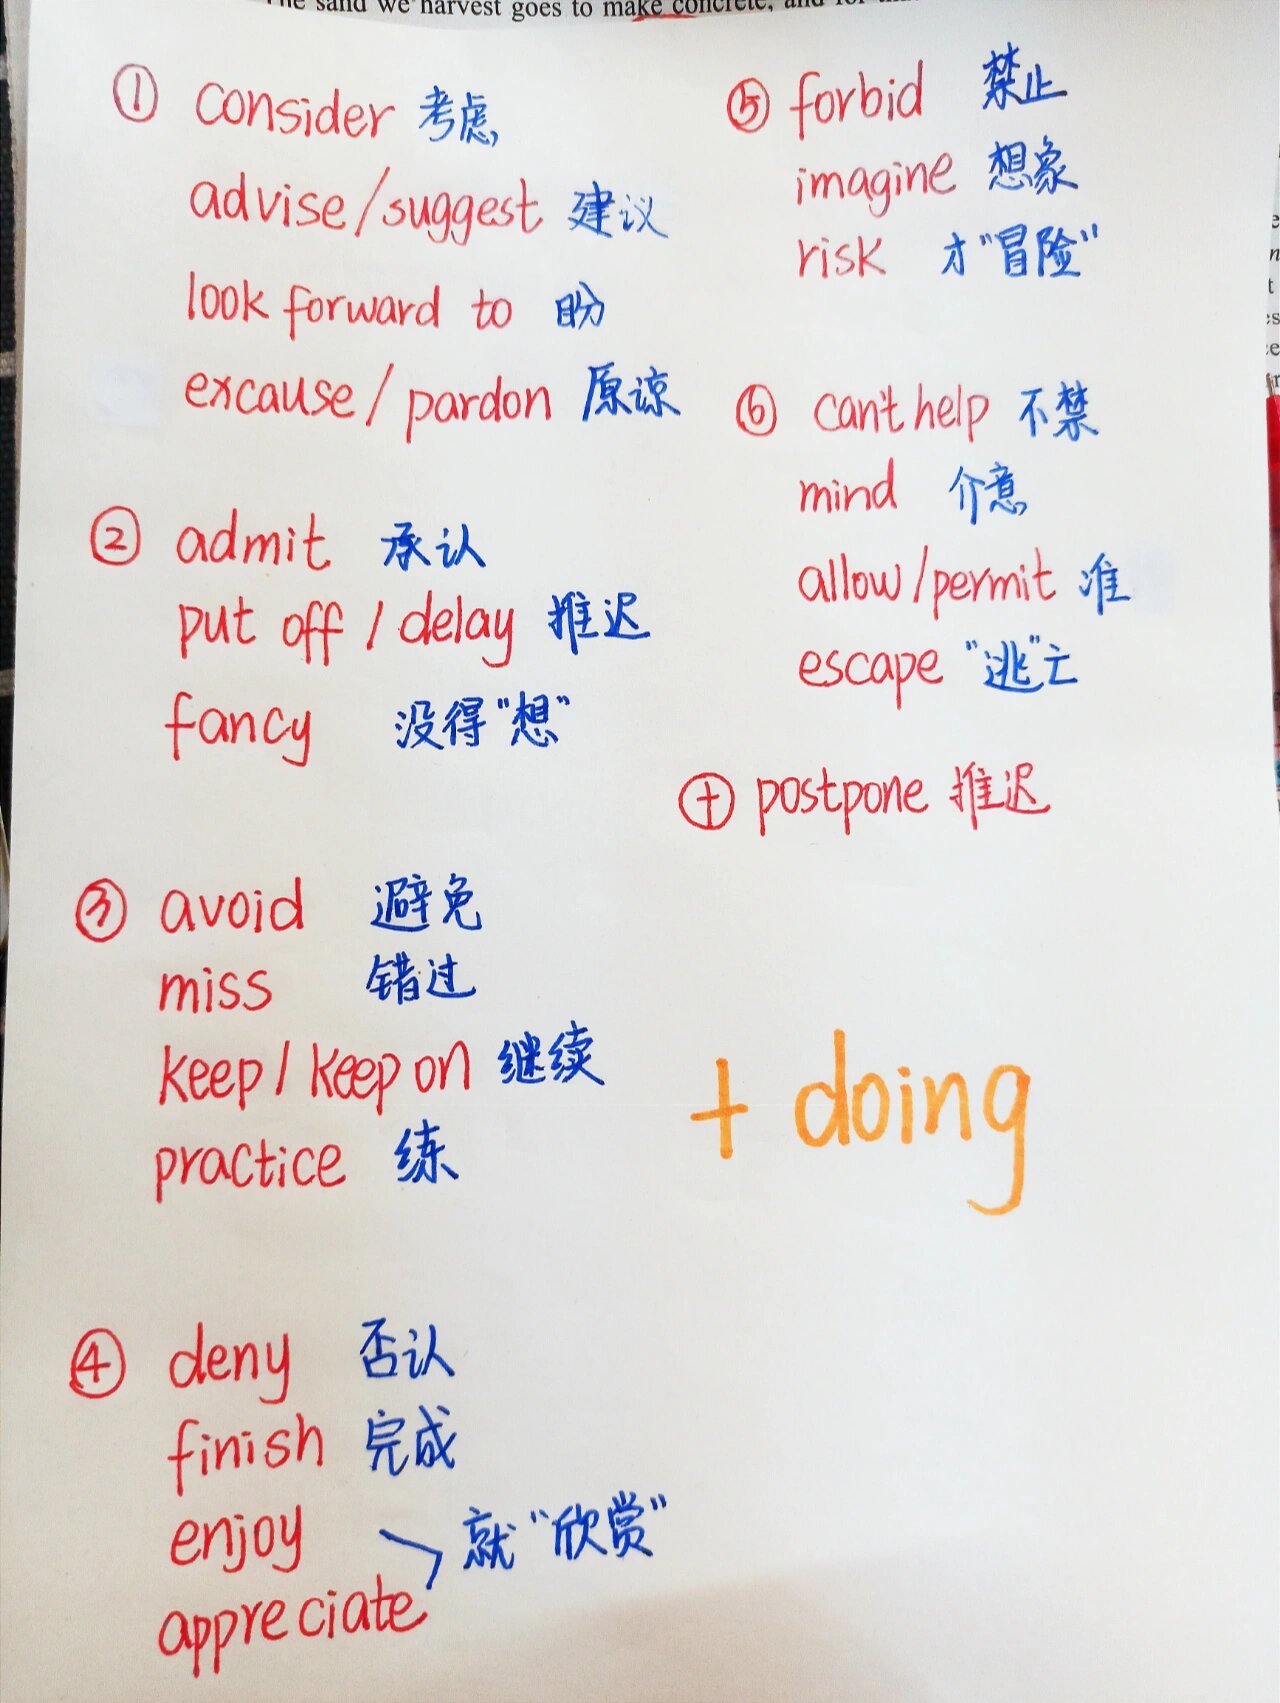 The sand we harvest goes to make concrete, and for
① consider 考虑
advise/suggest 建议
look forward to 盼
excause/pardon 原谅
② admit 承认
put off/delay 推迟
fancy 没得"想"
③ avoid 避免
miss 错过
keep/keep on 继续
practice 练
④ deny 否认
finish 完成
enjoy
就"欣赏"
appreciate
⑤ forbid 禁止
imagine 想象
risk 才"冒险"
⑥ can't help 不禁
mind 介意
allow/permit 准
escape "逃"亡
⊕ postpone 推迟
+ doing